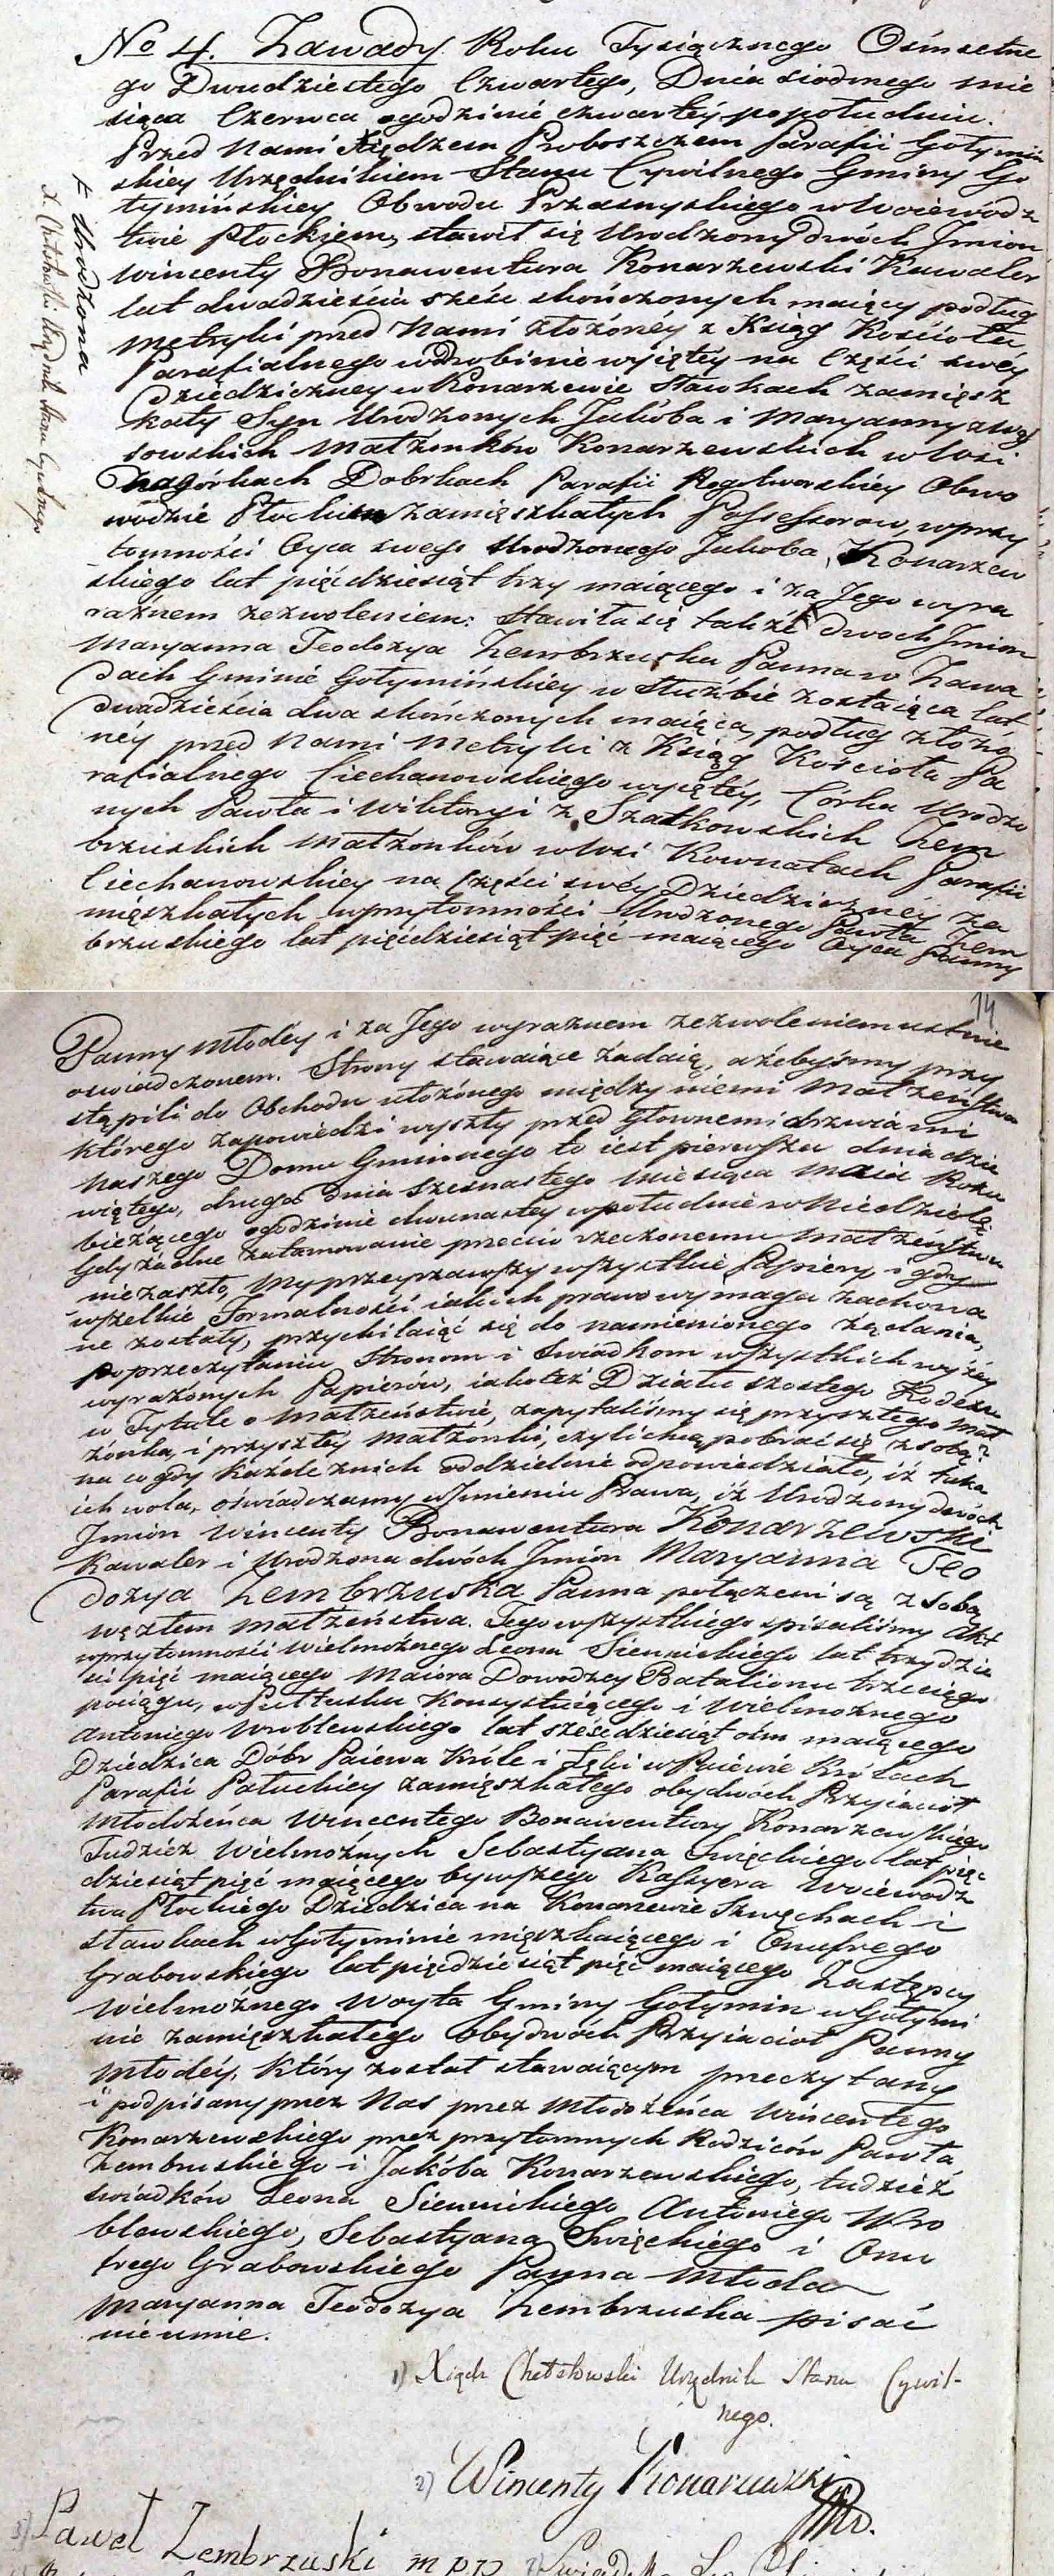 No 4. Zawady Roku Tysiącznego Osmsetne
go Dwudziestego Czwartego, Dnia siodmego mie
siąca Czerwca o godzinie czwartéy popołudniu.
Przed Nami Xiędzem Proboszczem Parafii Gołymin
skiey Urzędnikiem Stanu Cywilnego Gminy Go
łymińskiey Obwodu Przasnyskiego w Woiewódz
twie Płockiem, stawił się Urodzony dwóch Jmion
Wincenty Bonawentura Konarzewski Kawaler
lat dwadzieścia sześć skończonych maiący podług
Metryki przed Nami złożonéy z Ksiąg Kościoła
Parafialnego w Drobinie wyiętéy na Części swéy
Dziedziczney w Konarzewie Sławkach zamięsz
kały Syn Urodzonych Jakóba i Maryanny z Wąs
sowskich Małżonków Konarzewskich w Wsi
Nagórkach Dobrkach Parafii Rogotworskiey Obwo
wodzie Płockim zamięszkałych Possessorow, w przy
tomności Oyca swego Urodzonego Jakoba Konarzew
skiego lat pięćdziesiąt trzy maiącego i za Jego wyra
raznem zezwoleniem: Stawiła się także dwoch Jmion
Maryanna Teodozya Zembrzuska Panna w Zawa
dach Gminie Gołymińskiey w Służbie zostaiąca lat
dwadzieścia dwa skończonych maiąca, podług złożo
néy przed Nami Metryki z Ksiąg Kościoła Pa
rafialnego Ciechanowskiego wyiętéy, Córka Urodzo
nych Pawła i Wiktoryi z Szatkowskich Zem
brzuskich Małżonków w Wsi Kownatach Parafii
Ciechanowskiey na Części swéy Dziedziczney za
mięszkałych w przytomności Urodzonego Pawła Zem
brzuskiego lat pięćdziesiąt pięć maiącego Oyca Panny
+ Urodzona
X. Chełstowski Urzędnik Stanu Cywilnego
14
Panny Młodéy i za Jego wyraznem zezwoleniem ustnie
oswiadczonem. Strony stawaiące żądaią, ażebyśmy przy
stąpili do Obchodu ułożonego między niemi Małżeństwa
którego zapowiedzi wyszły przed głownemi drzwiami
Naszego Domu Gminnego to iest pierwsza dnia dzie
wiątego, druga dnia szesnastego Miesiąca Maia Roku
bieżącego o godzinie dwunastey w południe w Niedzielę
Gdy żadne zatamowanie przeciw rzeczonemu Małżeństwu
nie zaszło, My przeyrzawszy wszystkie Papiery i gdy
wszelkie Formalności iakich prawo wymaga zachowa
ne zostały, przychilaiąć się do namienionego żądania,
po przeczytaniu Stronom i Swiadkom wszystkich wyżéy
wyrażonych Papierów, iakoteż Działu szostego Kodexu
w Tytule o Małżeństwie, zapytaliśmy się przyszłego Mał
żonka, i przyszłéy Małżonki, czyli chcą pobrać się z sobą?
na co gdy każde z nich oddzielnie odpowiedziało, iż taka
ich wola, oświadczamy w Jmieniu Prawa, iż Urodzony dwóch
Jmion Wincenty Bonawentura Konarzewski
Kawaler i Urodzona dwóch Jmion Maryanna Teo
dozya Zembrzuska Panna połączeni są z sobą
węzłem Małżeństwa. Tego wszystkiego spisaliśmy Akt
w przytomności Wielmożnego Leona Siennickiego lat trzydzie
sci pięć maiącego Maiora Dowodzcy Batalionu trzeciego
pociągu, w Pułtusku Konsystuiącego i Wielmożnego
Antoniego Wroblewskiego lat sześćdziesiąt ośm maiącego
Dziedzica Dóbr Paiewa Króle i Łęki w Paiewie Królach
Parafii Pałuckiey zamięszkałego obydwóch Przyiaciół
Młodożeńca Wincentego Bonawentury Konarzewskiego
Tudzież Wielmożnych Sebastyana Święckiego lat pięć
dziesiąt pięć maiącego bywszego Kassyera Woiewódz
twa Płockiego Dziedzica na Konarzewie Skuzach i
Sławkach w Gołyminie mięszkaiącego i Onufrego
Grabowskiego lat pięćdziesiąt pięć maiącego Zastępcy
Wielmożnego Woyta Gminy Gołymin w Gołymi
nie zamięszkałego obydwóch Przyiacioł Panny
Młodéy. Który został stawaiącym przeczytany
i podpisany przez Nas przez Młodożeńca Wincentego
Konarzewskiego przez przytomnych Rodziców Pawła
Zembruskiego i Jakóba Konarzewskiego, tudzież
świadków Leona Siennickiego Antoniego Wro
blewskiego, Sebastyana Święckiego i Onu
frego Grabowskiego Panna Młoda
Maryanna Teodozya Zembrzuska pisać
nie umie.
1) Xiądz Chełstowski Urzędnik Stanu Cywil-
nego.
2) Wincenty Konarzewski
3) Paweł Zembrzuski mpp